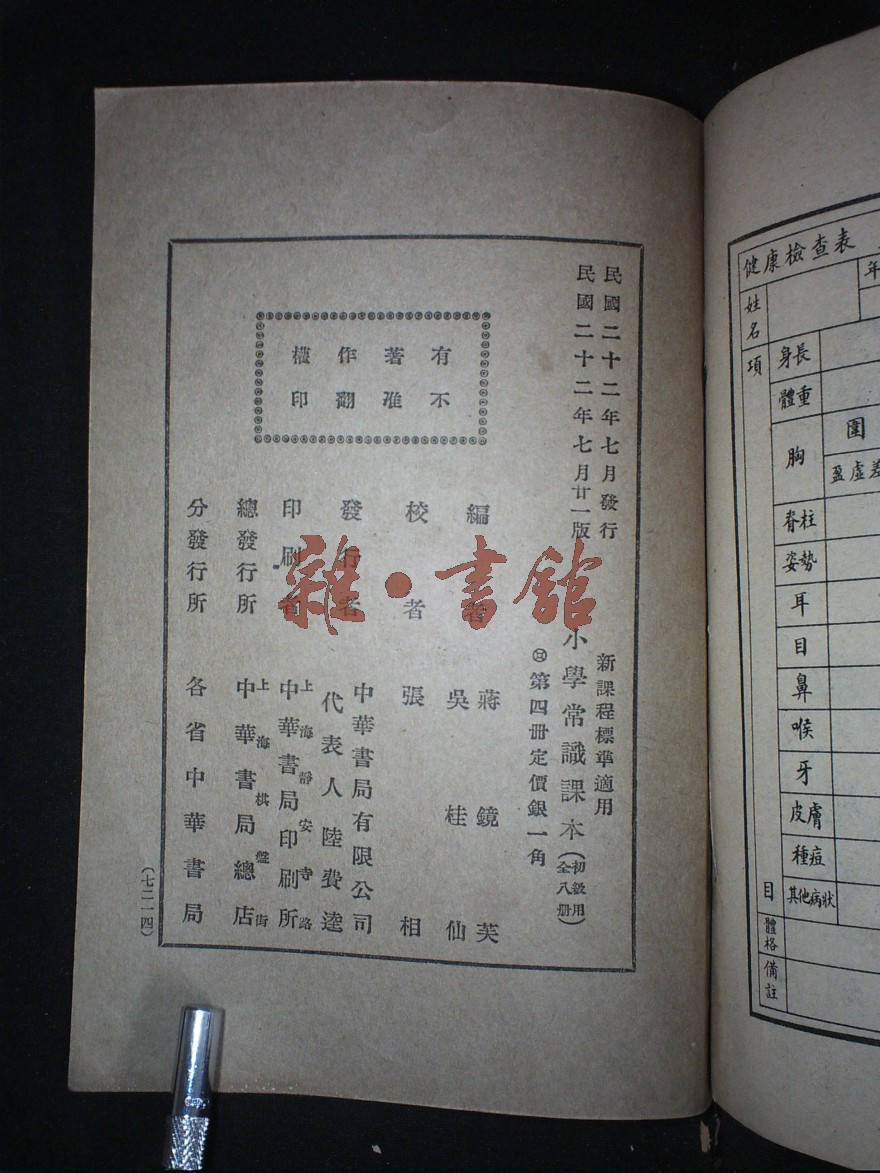 民國二十二年七月發行
民國二十二年七月廿一版
新課程標準適用
小學常識課本(初級用全八冊)
第四冊定價銀一角
有著作權
不准翻印
編著者 蔣鏡芙
吳桂仙
校者 張相
發行者 中華書局有限公司
代表人陸費逵
印刷者 上海靜安寺路
中華書局印刷所
總發行所 上海棋盤街
中華書局總店
分發行所 各省中華書局
(七二一四)
雜·書館
健康檢查表
年
姓名
項目
身長
體重
胸
圍
盈虛差
脊柱
姿勢
耳
目
鼻
喉
牙
皮膚
種痘
其他病狀
體格
備註